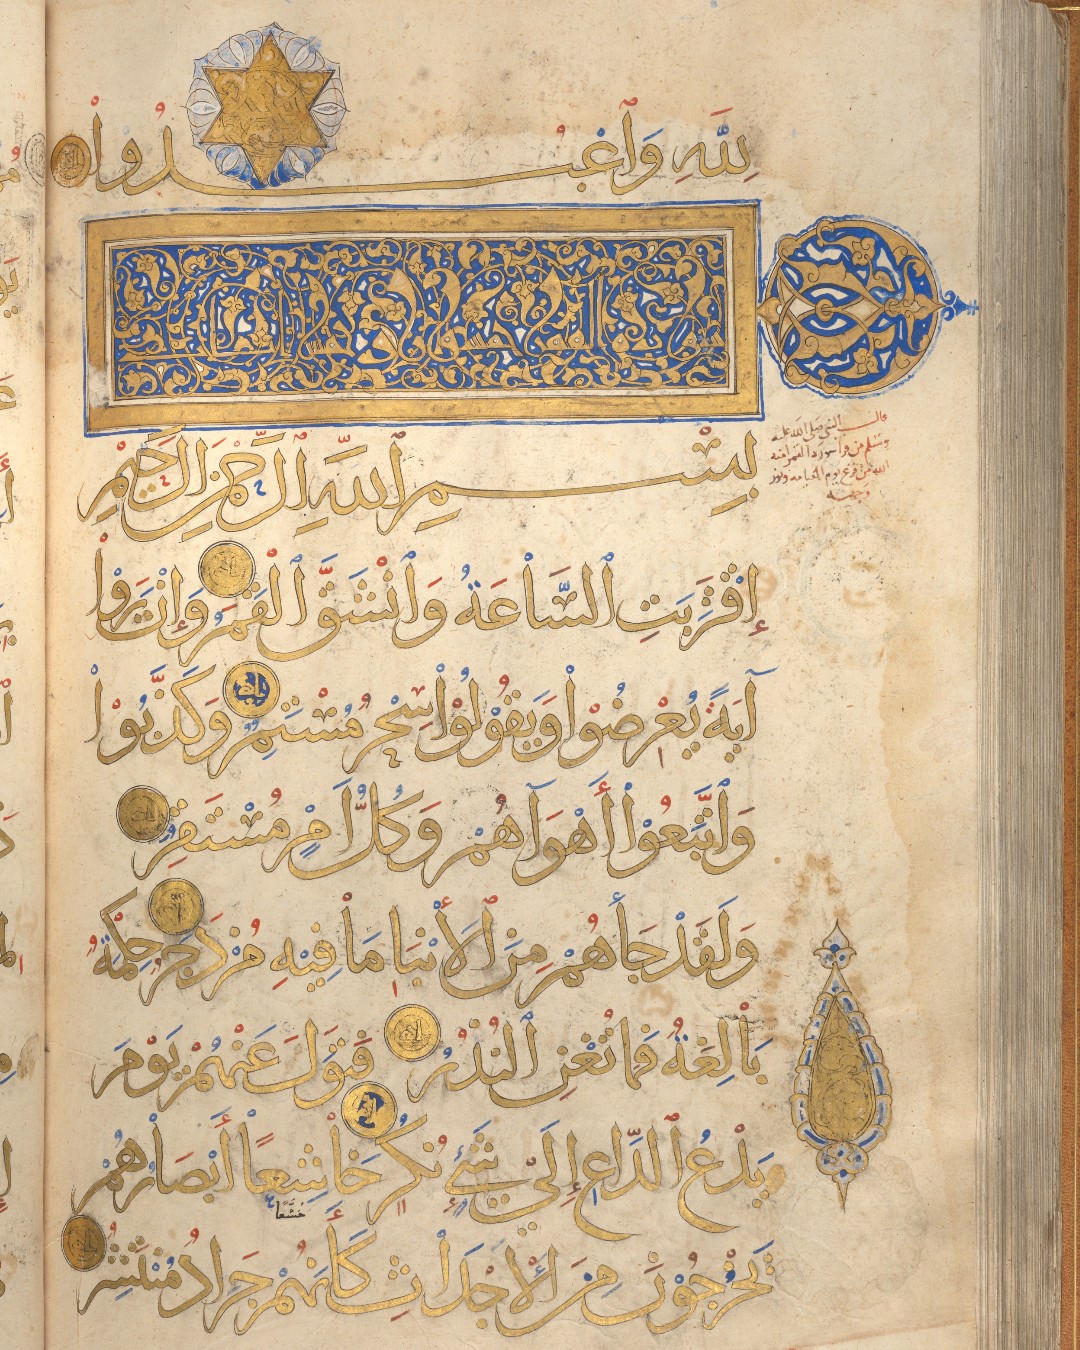 لِلَّهِ وَاعْبُدُوا
بِسْمِ اللَّهِ الرَّحْمٰنِ الرَّحِيمِ
قال النبي صلى الله عليه
وسلم من قرأ سورة القمر امنه
الله من فزع يوم القيامة ونور
وجهه
إِقْتَرَبَتِ السَّاعَةُ وَانْشَقَّ الْقَمَرُ وَإِنْ يَرَوْا
آيَةً يُعْرِضُوا وَيَقُولُوا سِحْرٌ مُسْتَمِرٌّ وَكَذَّبُوا
وَاتَّبَعُوا أَهْوَآهُمْ وَكُلُّ أَمْرٍ مُسْتَقِرٌّ
وَلَقَدْ جَاهُمْ مِنَ الْأَنْبَا مَا فِيهِ مُزْدَجَرٌ حِكْمَةٌ
بَالِغَةٌ فَمَا تُغْنِ النُّذُرُ فَتَوَلَّ عَنْهُمْ يَوْمَ
يَدْعُ الدَّاعِ إِلَى شَيْءٍ نُكُرٍ خَاشِعًا أَبْصَارُهُمْ
خُشَّعًا
يَخْرُجُونَ مِنَ الْأَجْدَاثِ كَأَنَّهُمْ جَرَادٌ مُنْتَشِرٌ